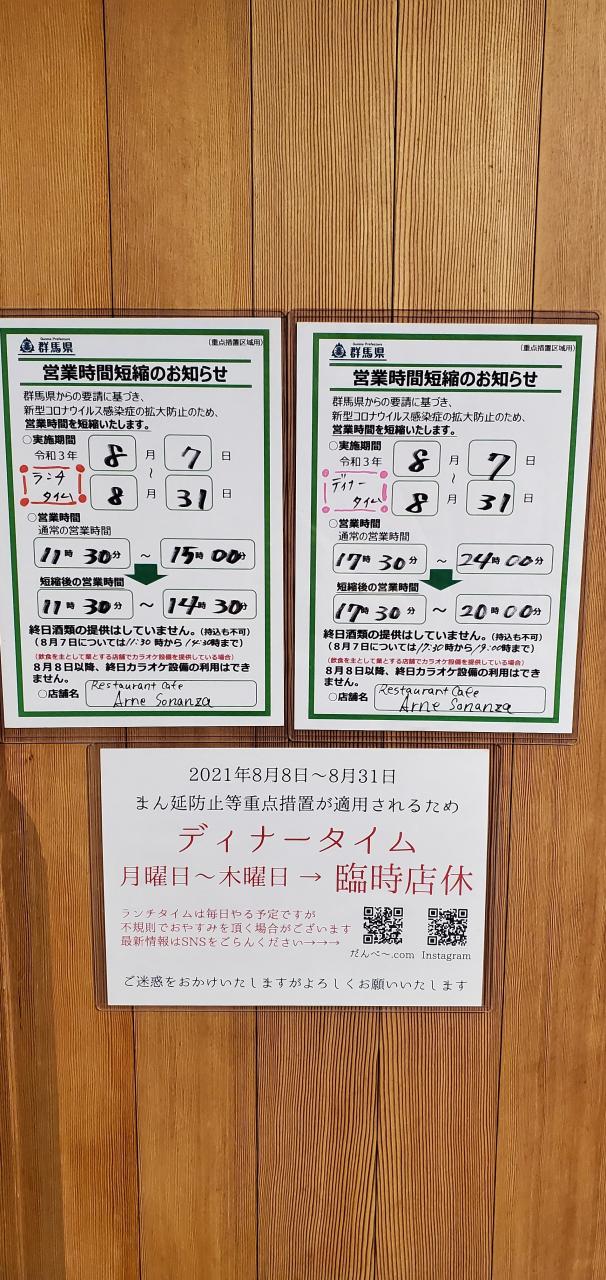 Gunma Prefecture
群馬県
(重点措置区域用)
営業時間短縮のお知らせ
群馬県からの要請に基づき、
新型コロナウイルス感染症の拡大防止のため、
営業時間を短縮いたします。
○実施期間
令和3年 8月7日
～
ランチタイム 8月31日
○営業時間
通常の営業時間
11時30分 ～ 15時00分
短縮後の営業時間
11時30分 ～ 14時30分
終日酒類の提供はしていません。(持込も不可)
(8月7日については11:30時から14:30時まで)
(飲食を主として業とする店舗でカラオケ設備を提供している場合)
8月8日以降、終日カラオケ設備の利用はでき
ません。
○店舗名 Restaurant Cafe
Arne Sonanza
Gunma Prefecture
群馬県
(重点措置区域用)
営業時間短縮のお知らせ
群馬県からの要請に基づき、
新型コロナウイルス感染症の拡大防止のため、
営業時間を短縮いたします。
○実施期間
令和3年 8月7日
～
ディナータイム 8月31日
○営業時間
通常の営業時間
17時30分 ～ 24時00分
短縮後の営業時間
17時30分 ～ 20時00分
終日酒類の提供はしていません。(持込も不可)
(8月7日については17:30時から19:00時まで)
(飲食を主として業とする店舗でカラオケ設備を提供している場合)
8月8日以降、終日カラオケ設備の利用はでき
ません。
○店舗名 Restaurant Cafe
Arne Sonanza
2021年8月8日～8月31日
まん延防止等重点措置が適用されるため
ディナータイム
月曜日～木曜日→臨時店休
ランチタイムは毎日やる予定ですが
不規則でおやすみを頂く場合がございます
最新情報はSNSをごらんください→→→
だんべ～.com Instagram
ご迷惑をおかけいたしますがよろしくお願いいたします